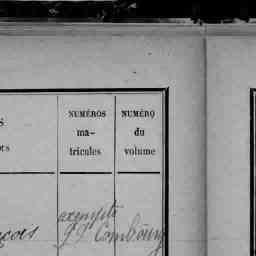 S NUMÉROS NUMÉRO
ma- du
ors tricules volume
exempté
çois J. J. Combourg